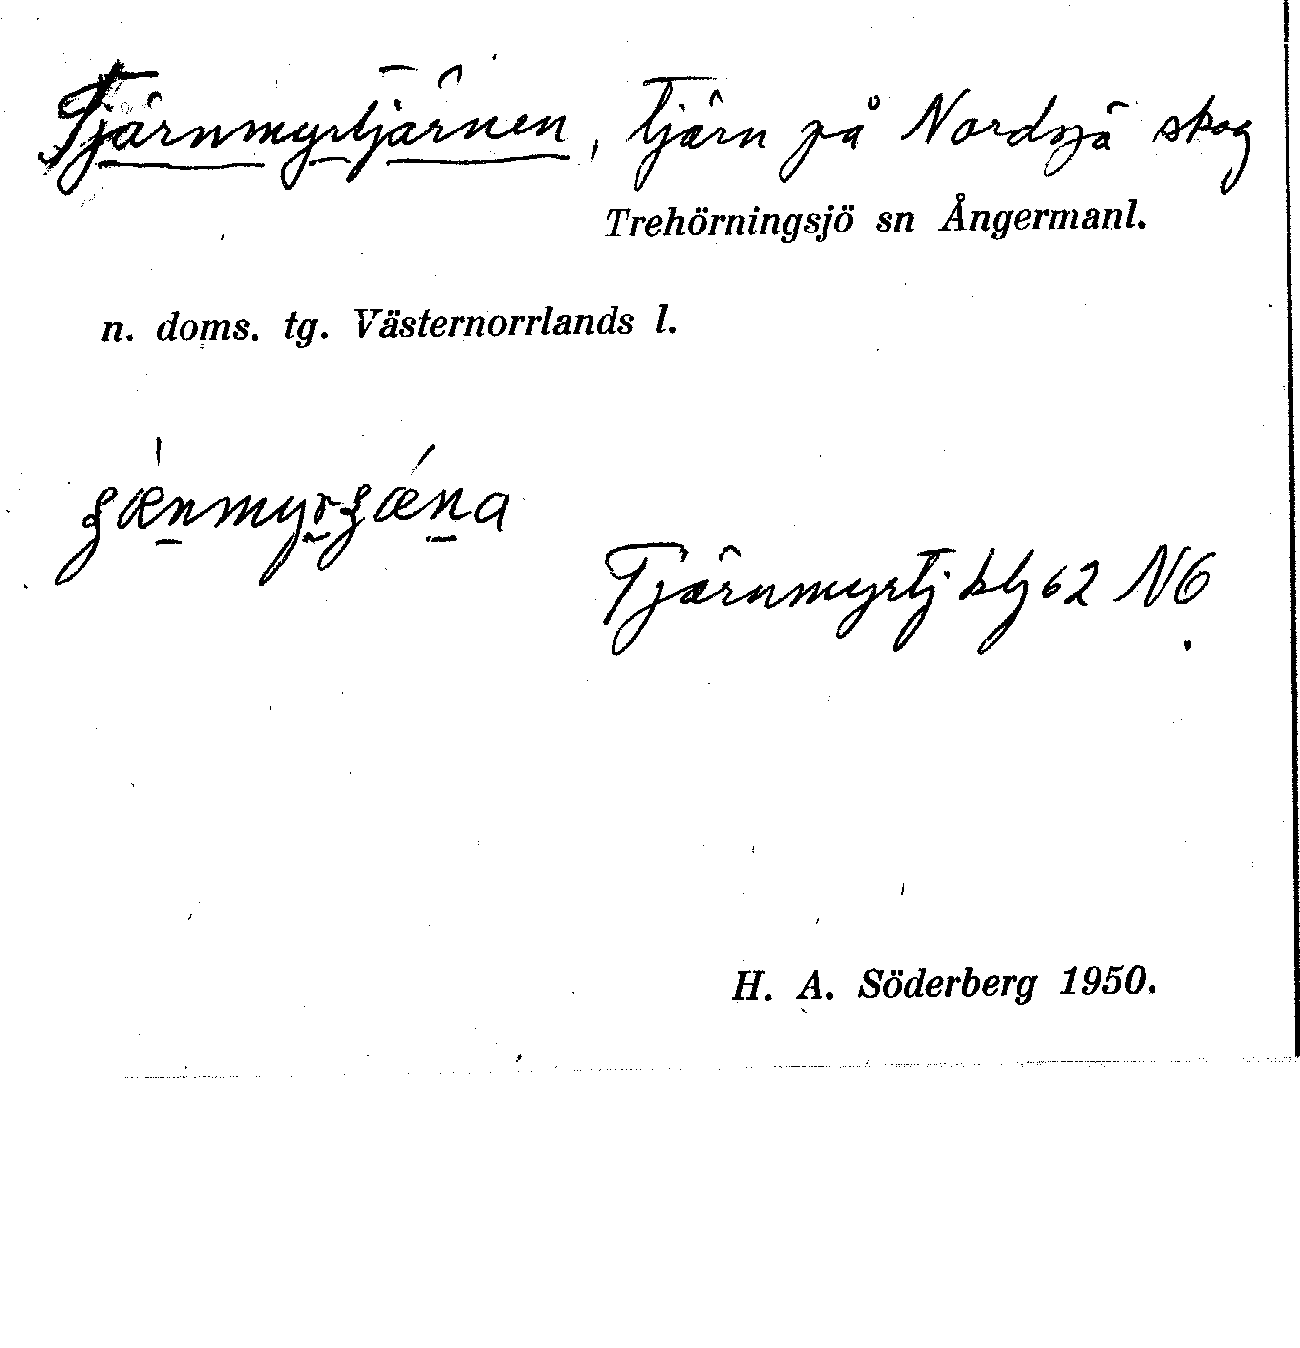 Tjärnmyrtjärnen, tjärn på Nordsjö skog
Trehörningsjö sn Ångermanl.
n. doms. tg. Västernorrlands l.
Tjärnmyrtj blg 62 NÖ
H. A. Söderberg 1950.